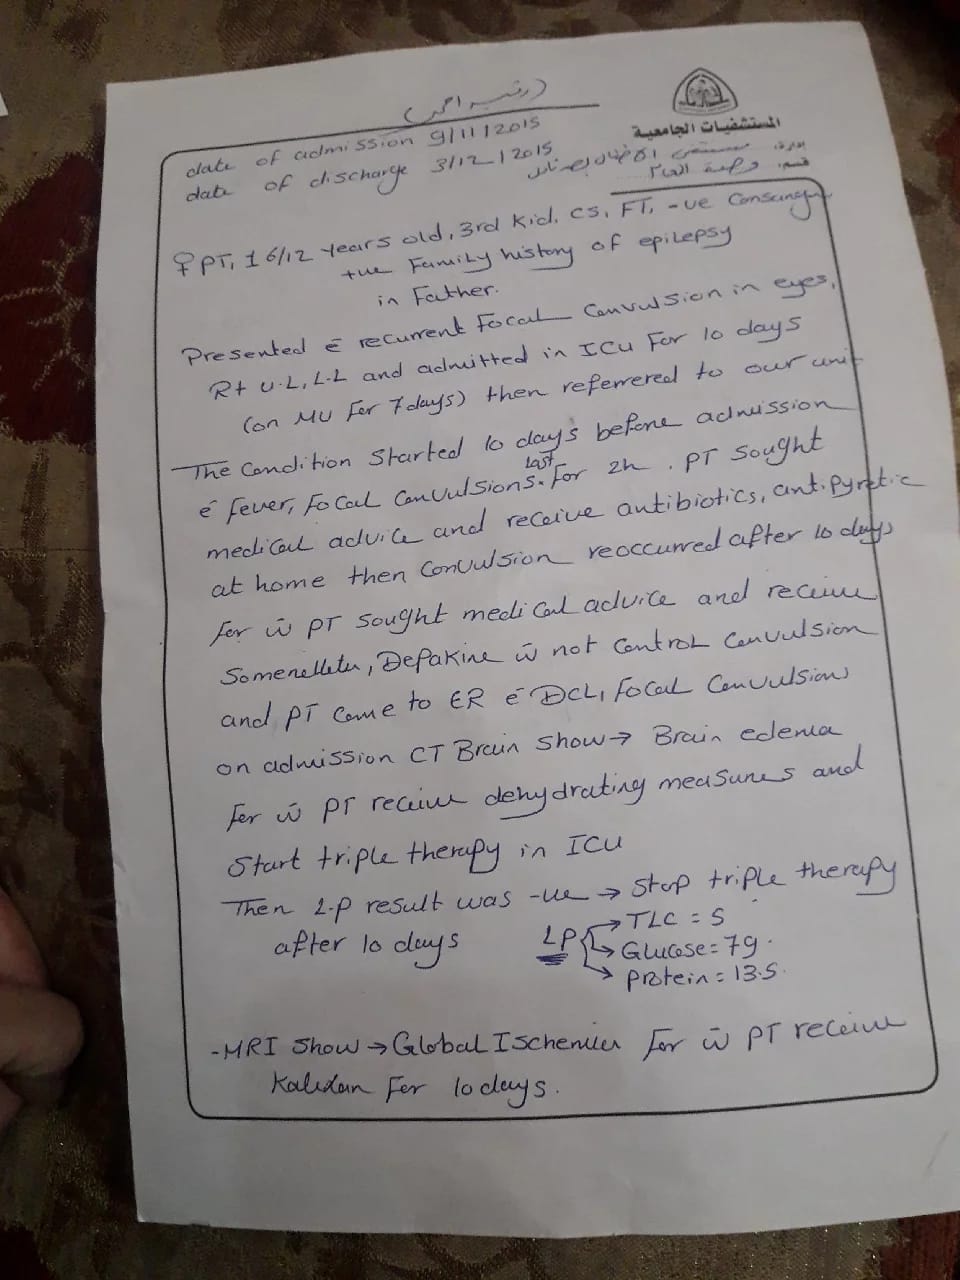 المستشفيات الجامعية
إدارة: مستشفى الأطفال
قسم: وحدة
date of admission 9/11/2015
date of discharge 3/12/2015
♀ PT, 1 6/12 years old, 3rd kid, CS, FT, -ve
+ve Family history of epilepsy
in Father.
Presented c̄ recurrent Focal Convulsion in eyes,
Rt U.L, L.L and admitted in ICU For 10 days
(on MV For 7 days) then referrered to our unit
The Condition Started 10 days before admission
c̄ fever, Focal Convulsions. last For 2h. PT sought
medical advice and receive antibiotics, antipyretic
at home then Convulsion reoccurred after 10 days
For w̄ PT sought medical advice and receive
Depakine w̄ not Control Convulsion
and PT Come to ER c̄ DCL, Focal Convulsions
on admission CT Brain Show → Brain edema
For w̄ PT receive dehydrating measures and
Start triple therapy in ICU
Then L.P result was -ve → Stop triple therapy
after 10 days
LP → TLC = 5
→ Glucose = 79.
→ Protein = 13.5.
- MRI Show → Global Ischemia For w̄ PT receive
For 10 days.